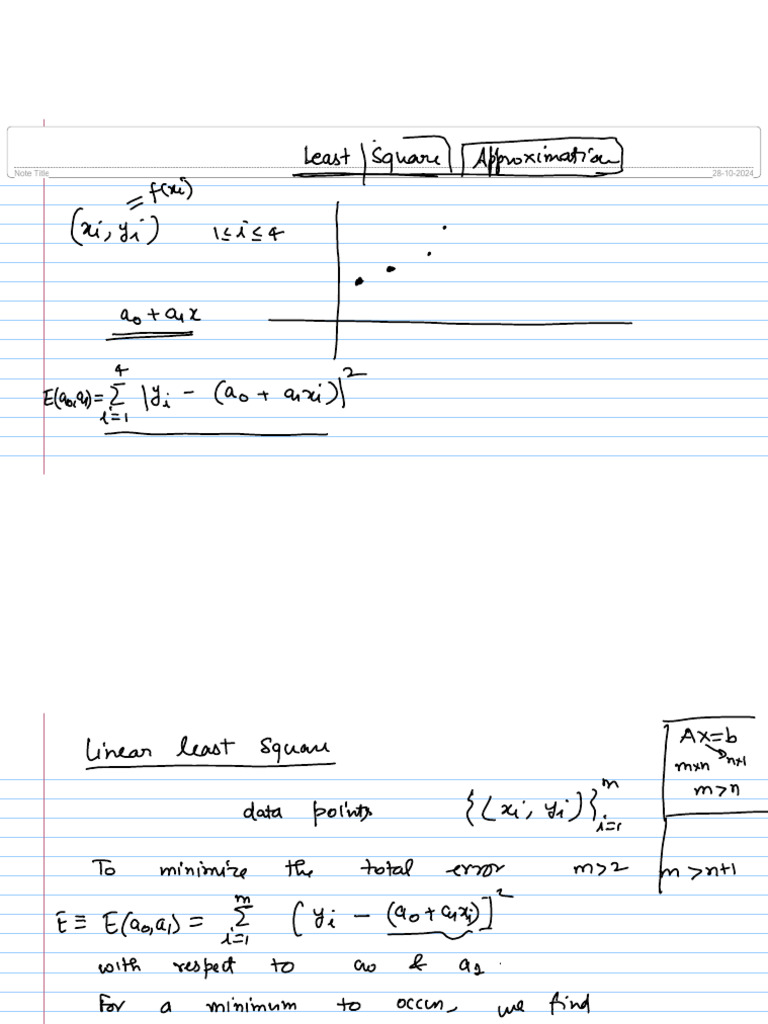 Least Square Approximation
Note Title
28-10-2024
= f(xi)
(xi, yi) 1 ≤ i ≤ 4
a0 + a1x
E(a0,a1) = 4∑i=1 |yi - (a0 + a1xi)|^2
Linear least Square
Ax=b
m×n n×1
m>n
data points {(xi, yi)}^m i=1
To minimize the total error m>2
m>n+1
E ≡ E(a0,a1) = m∑i=1 [yi - (a0+a1xi)]^2
with respect to a0 & a1.
For a minimum to occur, we find